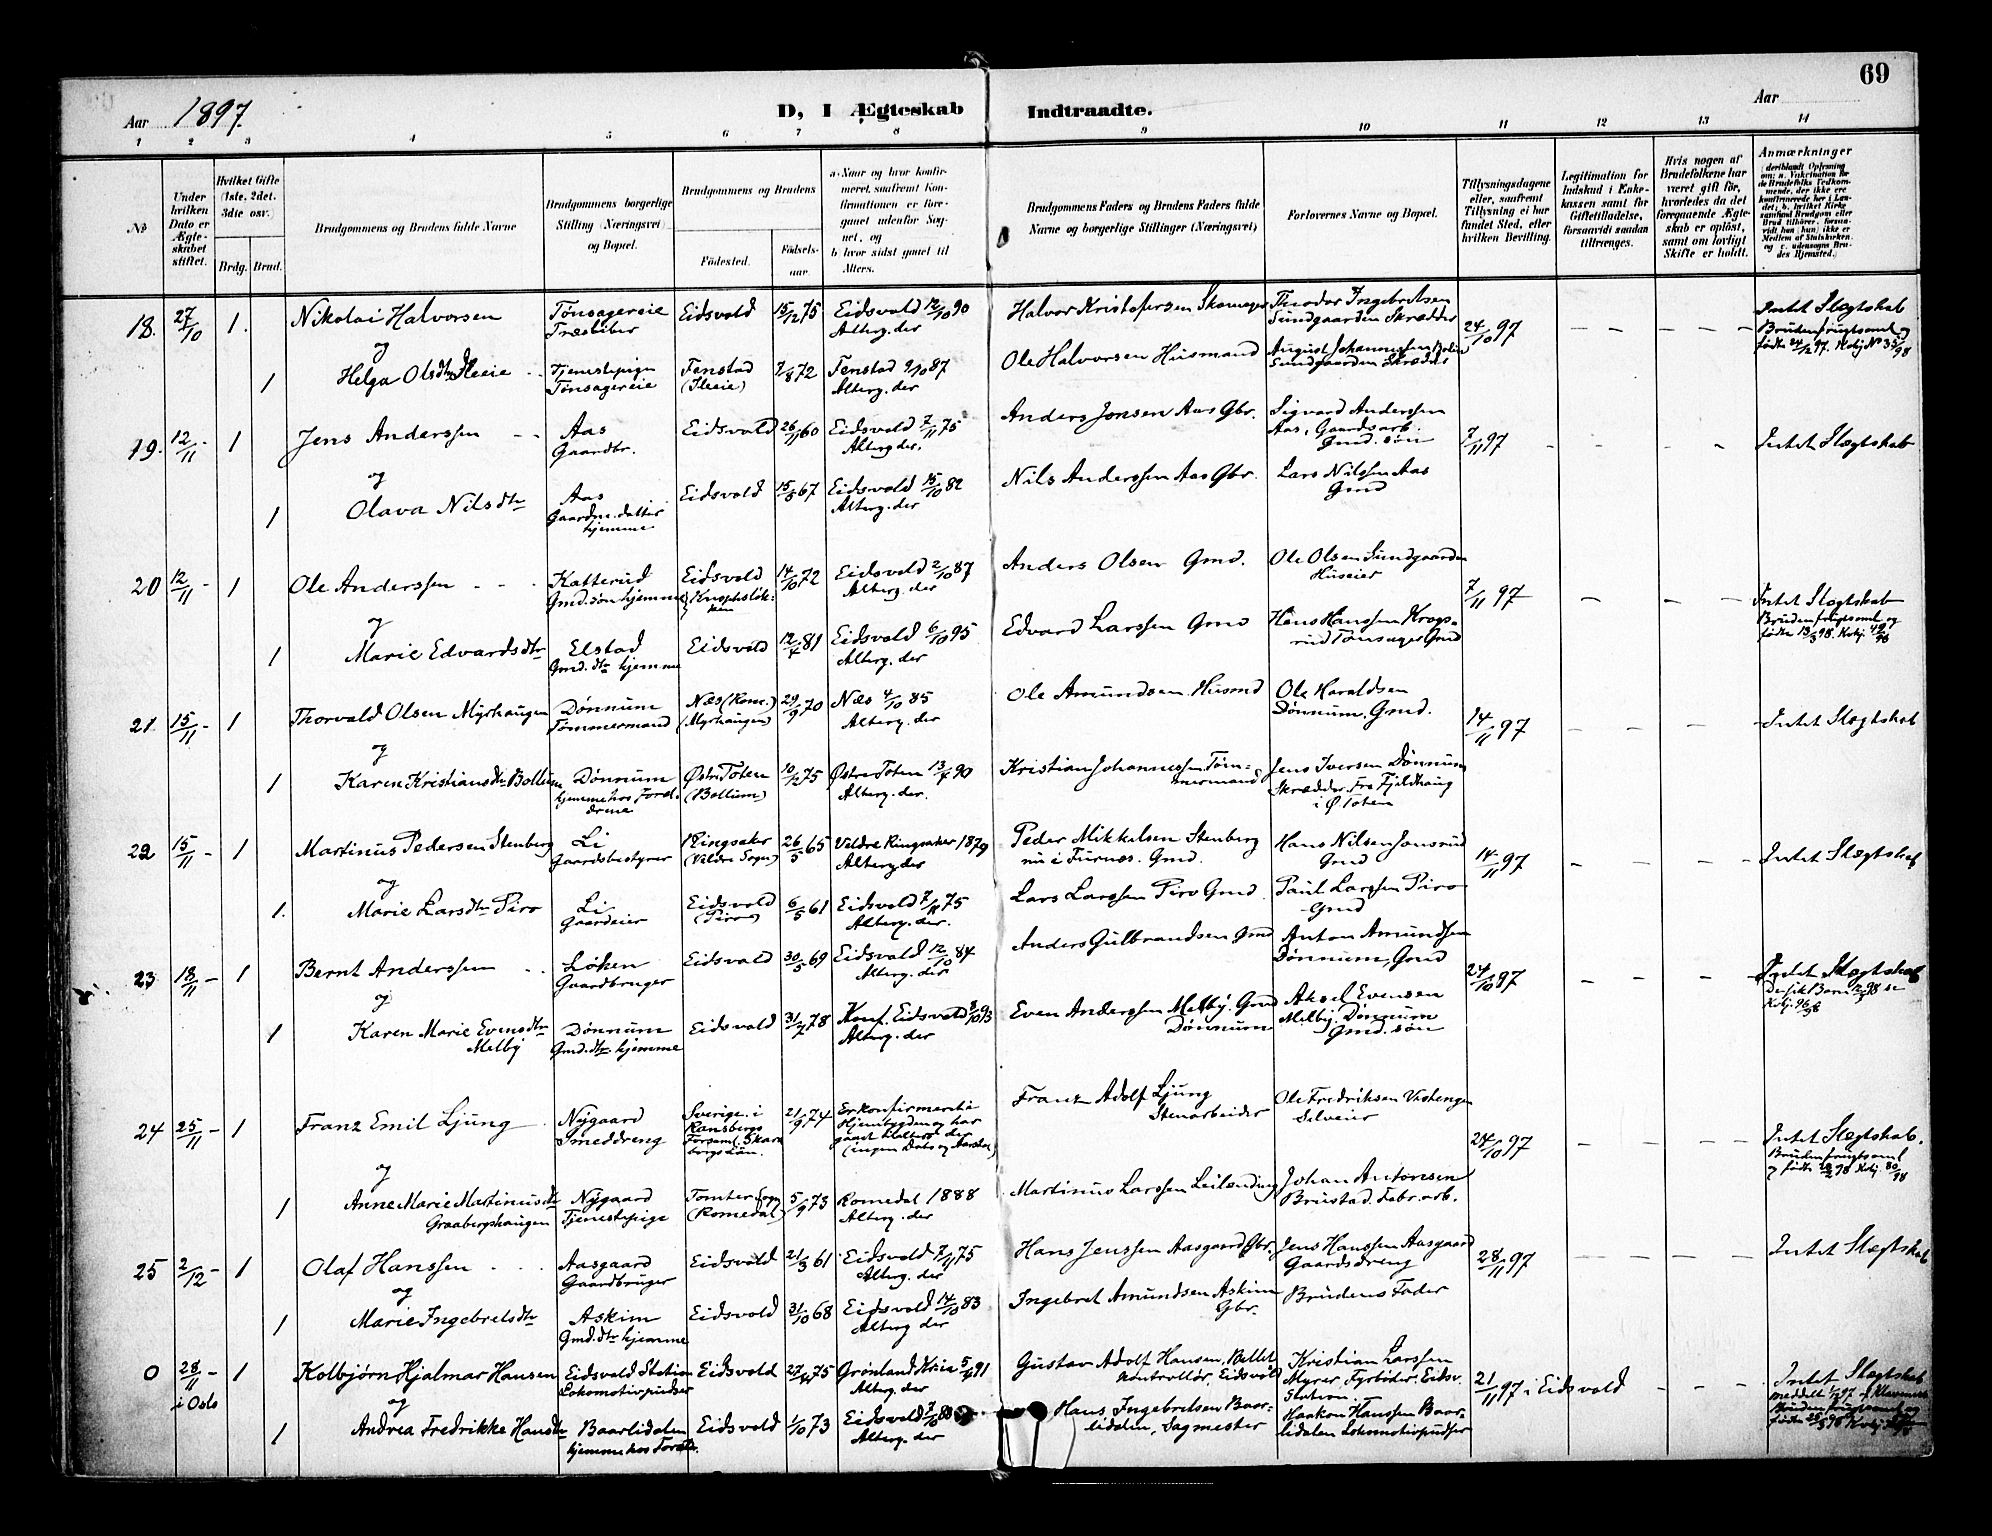 69
Aar 1897. D, I Ægteskab Indtraadte. Aar
1 2 3 4 5 6 7 8 9 10 11 12 13 14
No
Under hvilken Dato er Ægteskabet stiftet.
Hvilket Gifte (1ste, 2det, 3die osv.)
Brdg. Brud.
Brudgommens og Brudens fulde Navne
Brudgommens borgerlige Stilling (Næringsvei) og Bopæl.
Brudgommens og Brudens
Fødested. Fødselsaar.
a. Naar og hvor konfirmeret, saafremt Konfirmationen er foregaaet udenfor Sognet, og
b. hvor sidst gaaet til Alters.
Brudgommens Faders og Brudens Faders fulde Navne og borgerlige Stillinger (Næringsvei)
Forlovernes Navne og Bopæl.
Tillysningsdagene eller, saafremt Tillysning ei har fundet Sted, efter hvilken Bevilling.
Legitimation for Indskud i Enkekassen samt for Giftetilladelse, forsaavidt saadan tiltrænges.
Hvis nogen af Brudefolkene har været gift før, hvorledes da det foregaaende Ægteskab er opløst, samt om lovligt Skifte er holdt.
Anmærkninger
18. 27/10 1. Nikolai Halvorsen Tønsagereie Træbiter Eidsvold 15/12 75 Eidsvold 12/10 90 Alterg. der Halvor Kristofersen Skomager Theodor Ingebretsen Sundgaarden Skrædder 24/10 97 Intet Slægtskab
og
1 Helga Olsdtr Ileeie Tjenestepige Tønsagereie Fenstad (Ileeie) 7/8 72 Fenstad 9/10 87 Alterg. der Ole Halvorsen Husmand August Johannessen Sundgaarden Skrædder
19. 12/11 1 Jens Anderssen Aas Gaardbr. Eidsvold 26/11 60 Eidsvold 7/11 75 Alterg der. Anders Jonsen Aas Gbr. Sigvard Anderssen Aas, Gaardsarb. Gmd. søn 7/11 97 Intet Slægtskab
og
1 Olava Nilsdtr Aas Gaardm. datter hjemme Eidsvold 15/5 67 Eidsvold 15/10 82 Alterg. der Nils Anderssen Aas Gbr. Lars Nilssen Aas Gmd
20 12/11 1 Ole Anderssen Katterud Gmd. søn hjemme Eidsvold 14/10 72 Eidsvold 2/10 87 Alterg. der Anders Olsen Gmd. Ole Olsen Sundgaarden Huseier 7/11 97 Intet Slægtskab Bruden frugtsoml og
og
1 Marie Edvardsdtr Elstad Gmd. dtr hjemme Eidsvold 12/4 81 Eidsvold 6/10 95 Alterg. der Edvard Larssen Gmd Hans Hanssen Krogsrud Tønsager Gmd
21. 15/11 1 Thorvald Olsen Myrhaugen Dønnum Tømmermand Næs (Rom.) (Myrhaugen) 29/9 70 Næs 4/10 85 Alterg. der Ole Amundsen Husmd Ole Haraldsen Dønnum, Gmd. 14/11 97 Intet Slægtskab
og
1 Karen Kristiansdtr Bollum Dønnum hjemme hos Forældrene Østre Toten (Bollum) 10/12 75 Østre Toten 13/7 90 Alterg. der. Kristian Johannessen Tømmermand Jens Iversen Dønnum Skrædder Fra Fjeldhaug i Ø Toten
22 15/11 1 Martinus Pedersen Stenberg Li Gaardsbestyrer Ringsaker (Veldre Sogn) 26/5 65 Veldre Ringsaker 1879 Alterg. der Peder Mikkelsen Stenberg nu i Furnæs. Gmd. Hans Nilsen Jonsrud Gmd 14/11 97 Intet Slægtskab
og
1. Marie Larsdtr Piro Li Gaardeier Eidsvold (Piro) 6/5 61 Eidsvold 7/11 75 Alterg. der. Lars Larssen Piro Gmd Paul Larssen Piro Gmd
23 18/11 1 Bernt Anderssen Løken Gaardbruger Eidsvold 30/5 69 Eidsvold 12/10 84 Alterg. der Anders Gulbrandsen Gmd Anton Amundsen Dønnum, Gmd 24/10 97 Intet Slægtskab
og
1 Karen Marie Evensdtr Melby Dønnum Gmd. dtr hjemme Eidsvold 31/7 78 Konf. Eidsvold 8/10 93 Alterg. der Even Anderssen Melby. Gmd Dønnum Aksel Evensen Melby, Dønnum Gmd. søn
24 25/11 1 Franz Emil Ljung Nygaard Smeddreng Sverige. i Ransbergs Forsaml. Skaraborgs Län. 21/9 74 Er konfirmert i Hjembygden og har gaaet til alters der (ingen Dato og Aarstal) Franz Adolf Ljung Stenarbeider Ole Fredriksen Vestengen Selveier 24/10 97 Intet Slægtskab. Bruden frugtsoml
og
1 Anne Marie Martinusdtr Graaberghaugen Nygaard Tjenestepige Tomter Sogn (Romedal) 5/9 73 Romedal 1888 Alterg. der Martinus Larssen Leilænding Johan Antonsen Brustad. Fabr. arb.
25 2/12 1 Olaf Hanssen Aasgaard Gaardbruger Eidsvold 21/3 61 Eidsvold 7/11 75 Alterg. der Hans Jenssen Aasgaard Gbr. Jens Hanssen Aasgaard Gaardsdreng 28/11 97 Intet Slægtskab
og
1 Marie Ingebretsdtr Askim Gmd. dtr hjemme Eidsvold 31/10 68 Eidsvold 14/10 83 Alterg der Ingebret Amundsen Askim Gbr. Brudens Fader
0 28/11 i Oslo 1 Kolbjørn Hjalmar Hansen Eidsvold Station Lokomotivpudser Eidsvold 27/4 75 Grønland Kria 5/4 91 Alterg. der Gustav Adolf Hansen, Billetkontrollør, Eidsvold Kristian Larssen Myrer Fyrbøder. Eidsv. Station 21/11 97 i Eidsvold Intet Slægtskab
og
1 Andrea Fredrikke Hansdtr Baarlidalen hjemme hos Foræld. Eidsvold 1/10 73 Eidsvold 7/10 88 Alterg. der Hans Ingebretsen Baarlidalen, Sagmester Haakon Hanssen Baarlidalen Lokomotivpudser